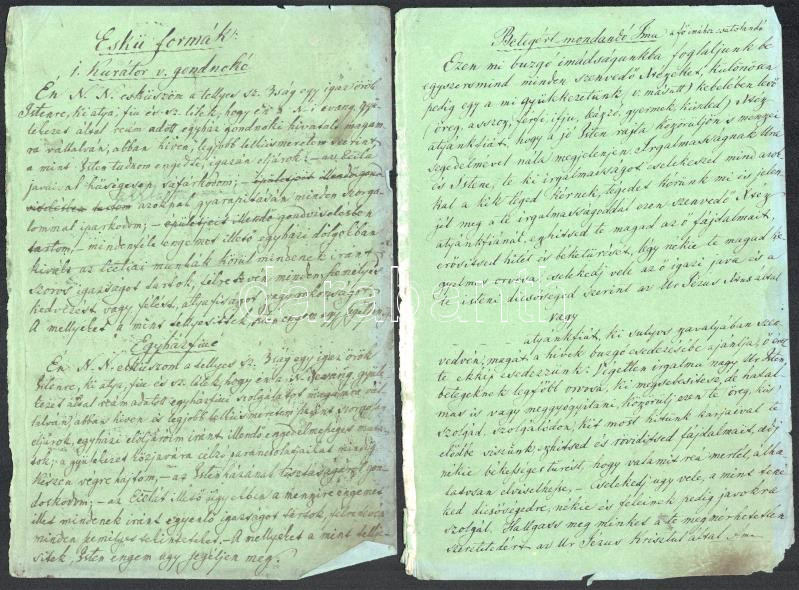 Eskü formák:
1. Kurátor v. gondnoké
Én N. N. esküszöm a tellyes sz. Háromság egy igaz örök
Istenre, ki atya, fiu és sz. lélek, hogy én a N. i evang. gyü-
lekezet által reám adott egyház gondnoki hivatalt magam-
ra vállalván, abban hiven, legjobb lelkiismeretem szerint,
a mint Isten tudnom engedi, igazán eljárok; – az Eccla
javaival hűségesen sáfárkodom; –
azoknak gyarapitásában minden szorga-
lommal iparkodom; – épületeit illető gondviselésben
tartom, – mindenféle engemet illető egyházi dolgokban
kivált az Ecclai munkák körül mindenek iránt
szoros igazságot tartok, félre tévén minden személyes
kedvezést vagy félést, atyafiságot
A mellyeket a mint tellyesitek, Isten engem ugy segéljen
Egyházfiué
Én N. N. esküszöm a tellyes sz. Háromság egy igaz örök
Istenre, ki atya, fiu és sz. lélek, hogy én a N. i evang. gyüle-
kezet által reám adatott egyházfiui szolgálatot magamra vál-
lalván, abban hiven és legjobb lelkiismeretem szerint szorgosan
eljárok, egyházi elöljáróim iránt illendő engedelmességet muta-
tok; a gyülekezet közjavára célzó parancsolatjaikat mindig
készen végre hajtom, – az Isten házának tisztaságáról gon-
doskodom; – az Ecclát illető ügyekben a mennyire engemet
illet mindenek iránt egyenlő igazságot tartok, félretévén
minden személyes tekinteteket. – A mellyeket a mint telly-
sitek, Isten engem ugy segéljen meg.
Betegért mondandó Ima a fő imához csatolandó
Ezen mi buzgó imádságunkba foglaljunk be
egyszersmind minden szenvedő N-ségeket, különösen
pedig egy a mi gyülekezetünk (v. másutt) kebelében levő
(öreg, asszony, férfi, ifju, hajadon, gyermek, kisded) N-ség
atyánkfiát; hogy a jó Isten rajta könyörüljön s mennyei
segedelmével nála megjelenjen. Irgalmasságnak Ura
s Istene, te ki irgalmasságot cselekeszel mind azok-
kal a kik téged kérnek, tégedet kérünk mi is jelen-
jél meg a te irgalmasságoddal ezen szenvedő N-ség
atyánkfiánál, enyhitsed te magad az ő fájdalmait,
erősitsed hitét és béketürését, légy nékie te magad ke-
gyelmes orvosa, cselekedj vele az ő igazi java és a
te isteni dicsőséged szerint az Ur Jézus Krisztus által
vagy
atyánkfiát, ki sulyos nyavalyában szen-
vedvén, magát a hivek buzgó esedezésébe ajánlja, ő érette
te ekkép esedezzünk: Végetlen irgalmu nagy Ur Isten,
betegeknek legfőbb orvosa, ki megsebesitesz, de hatal-
mas is vagy meggyógyitani, könyörülj ezen te öreg, kis,
szolgád, szolgálódon, kit most hitünk karjaival te
elődbe viszünk, enyhitsed és röviditsed fájdalmait, adj
nékie békességestürést, hogy valamit reá mértél, álha-
tatosan elviselhesse, – Cselekedj ugy vele, a mint tené-
ked dicsőségedre, nékie és feleinek pedig javokra
szolgál. Hallgass meg minket a te megmérhetetlen
szeretetedért az Ur Jézus Krisztus által. Amen
darabanth